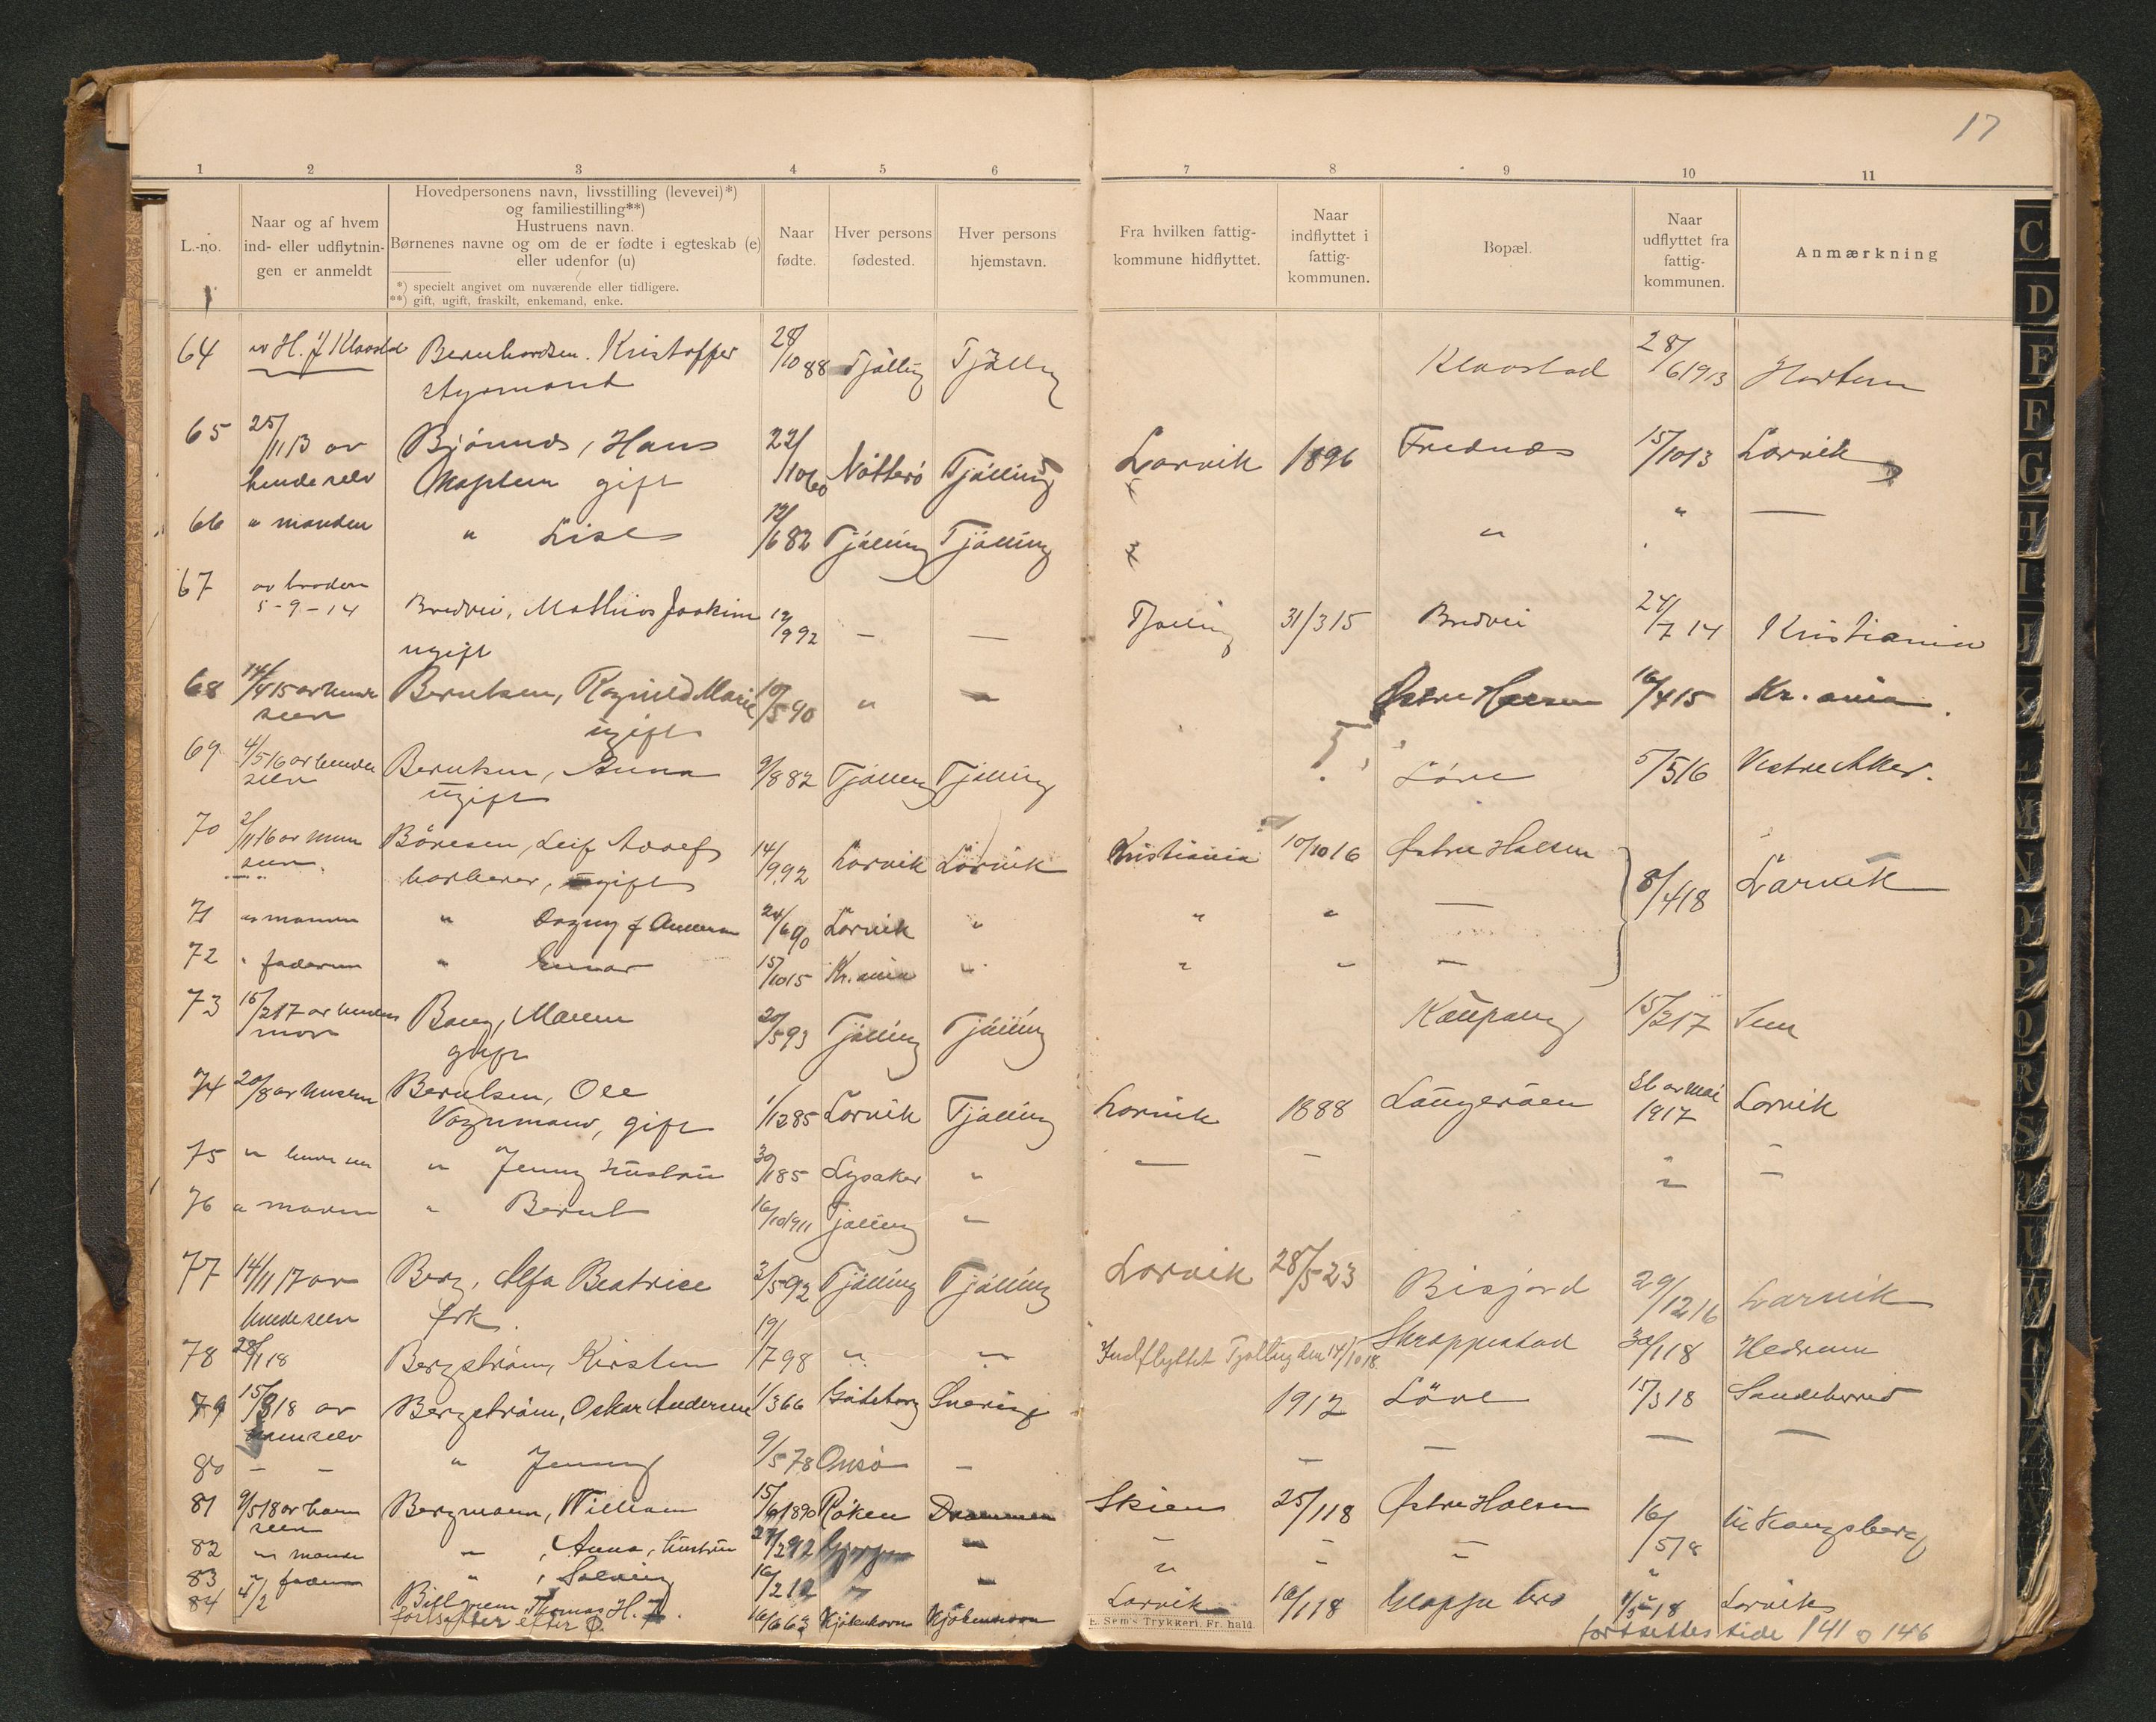 17
1 2 3 4 5 6 7 8 9 10 11
L.-no.
Naar og af hvem
ind- eller udflytnin-
gen er anmeldt
Hovedpersonens navn, livsstilling (levevei)*)
og familiestilling**)
Hustruens navn.
Børnenes navne og om de er fødte i egteskab (e)
eller udenfor (u)
*) specielt angivet om nuværende eller tidligere.
**) gift, ugift, fraskilt, enkemand, enke.
Naar
fødte.
Hver persons
fødested.
Hver persons
hjemstavn.
Fra hvilken fattig-
kommune hidflyttet.
Naar
indflyttet i
fattig-
kommunen.
Bopæl.
Naar
udflyttet fra
fattig-
kommunen.
Anmærkning
64 av H. J Klavstad Bernhardsen. Kristoffer 28/10 88 Tjølling Tjølling Klavstad 28/6 1913 Hortem
styrmand
65 25/11 13 av Bjønnes, Hans 22/10 60 Nøtterø Tjølling Larvik 1896 Frednæs 15/10 13 Larvik
hende selv Kaptein gift
66 " manden " Lise 12/6 82 Tjølling Tjølling " " —
67 av broderen Bredvei, Mathias Joakim 12/9 92 — — Tjølling 31/3 15 Bredvei 24/7 14 Kristiania
5-9-14 ugift
68 14/4 15 av hende Berntsen, Ragnild Marie 10/5 90 " — Østre Halsen 16/4 15 Kr.ania.
selv ugift
69 4/5 16 av hende Berntsen, Anna 9/8 82 Tjølling Tjølling Løve 5/5 16 Vestre Aker.
selv ugift
70 2/11 16 av ham Børesen, Leif Adolf 14/9 92 Larvik Larvik Kristiania 10/10 16 Østre Halsen 8/4 18 Larvik
selv. barberer, gift
71 av manden " Dagny f Andersen 24/6 90 Larvik " " " —
72 " faderen " Einar 15/10 15 Kr.ania " " " —
73 15/2 17 av hendes Bang, Maren 20/5 93 Tjølling Tjølling Kaupang 15/2 17 Sem
mor gift
74 20/8 av Berntsen, Ole 1/12 85 Larvik Tjølling Larvik 1888 Langeråen Sl av Mai Larvik
Vognmand, gift 1917
75 " " Jenny hustru 30/1 85 Lysaker " — — " —
76 " " Bernt 16/10 1911 Tjølling " " —
77 14/11 17 av Berg, Alfa Beatrice 3/5 92 Tjølling Tjølling Larvik 28/5 23 Bisjord 29/12 16 Larvik
hende selv frk.
78 28/1 18 Bergstrøm, Kirsten 19/7 98 " " Indflyttet Tjølling den 14/10 18. Skrappestad 30/1 18 Hedrum
79 15/3 18 av Bergstrøm, Oskar Andersen 1/3 66 Gøteborg Sverige 1912 Løve 15/3 18 Sandeherred
ham selv
80 — — " Jenny 9/5 78 Onsø — — — — —
81 9/5 18 av ham Bergmann, William 15/6 1890 Røken Drammen Skien 25/1 18 Østre Halsen 16/5 18 til Kongsberg
selv
82 " " , Anna, hustru 27/2 92 — " —
83 " faderen " , Solveig 16/2 12 " "
84 4/2 Thomas H. 16/6 63 Kjøbenhavn Kjøbenhavn Larvik 10/1 18 18 Larvik
fortsetter efter Ø.
E. Sem's Trykkeri. Fr.hald.
fortsettes side 141 o 146
C
D
E
F
G
H
I
J
K
L
M
N
O
P
Q
R
S
T
U
V
W
Y
Z